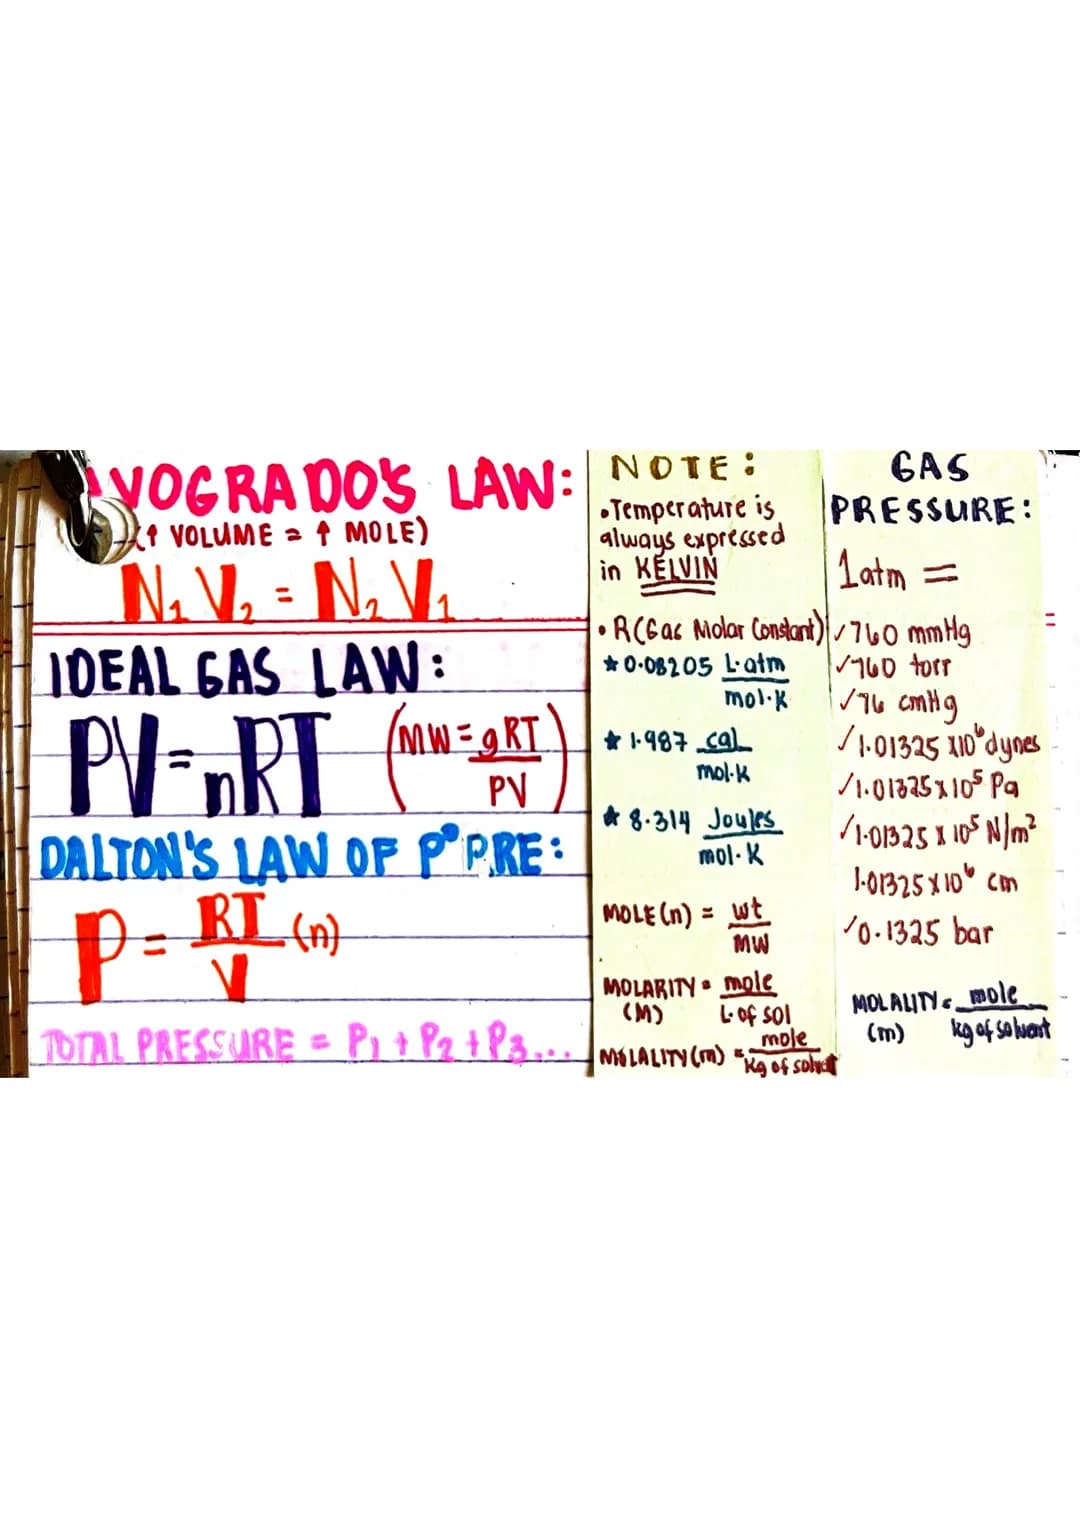 AVOGRADO'S LAW:
(↑ VOLUME = ↑ MOLE)
N₁ V₂ = N₂ V₁
IDEAL GAS LAW:
PV = nRT (MW = gRT
PV)
DALTON'S LAW OF P° P.RE:
P = RT (n)
V
TOTAL PRESSURE = P₁ + P₂ + P₃...
NOTE:
• Temperature is
always expressed
in KELVIN
• R (Gas Molar Constant)
★ 0.08205 L·atm
mol·K
★ 1.987 cal
mol·K
★ 8.314 Joules
mol·K
MOLE (n) = wt
MW
MOLARITY = mole
(M) L·of sol
MOLALITY (m) = mole
kg of solvent
GAS
PRESSURE:
1 atm =
✓ 760 mmHg
✓ 760 torr
✓ 76 cmHg
✓ 1.01325 x10⁶ dynes
✓ 1.01325 x 10⁵ Pa
✓ 1.01325 x 10⁵ N/m²
1.01325 x 10⁶ cm
✓ 0.1325 bar
MOLALITY = mole
(m) kg of solvent